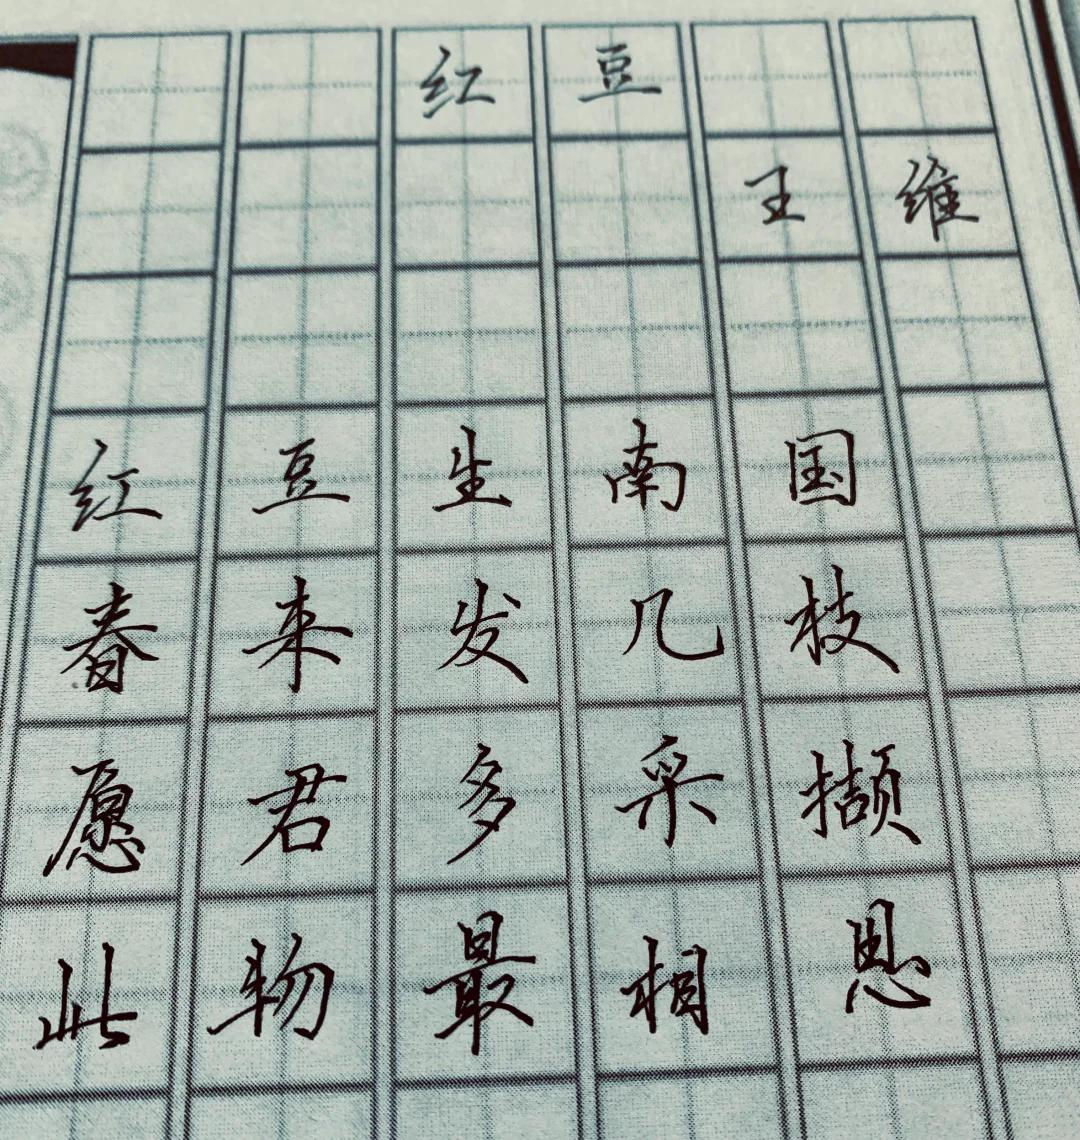 红豆
王维
红豆生南国
春来发几枝
愿君多采撷
此物最相思